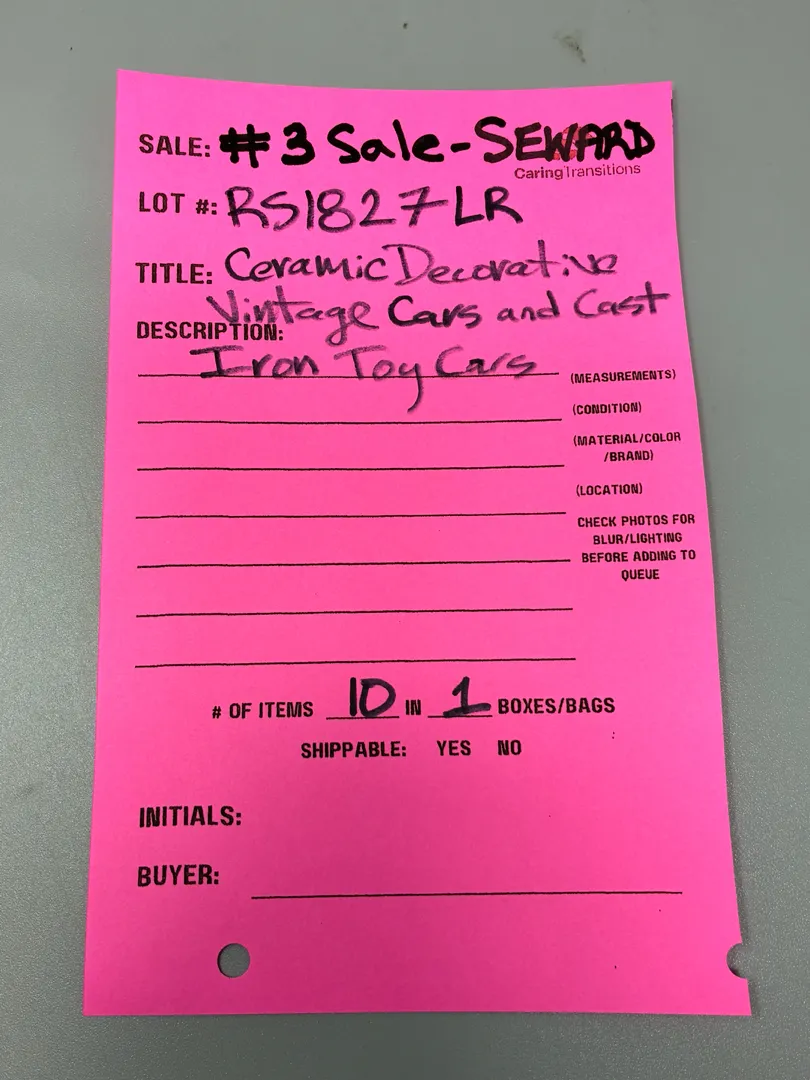 SALE: #3 Sale-SEWARD
CaringTransitions
LOT #: RS1827LR
TITLE: Ceramic Decorative
Vintage Cars and Cast
DESCRIPTION:
Iron Toy Cars
(MEASUREMENTS)
(CONDITION)
(MATERIAL/COLOR
/BRAND)
(LOCATION)
CHECK PHOTOS FOR
BLUR/LIGHTING
BEFORE ADDING TO
QUEUE
# OF ITEMS 10 IN 1 BOXES/BAGS
SHIPPABLE: YES NO
INITIALS:
BUYER: